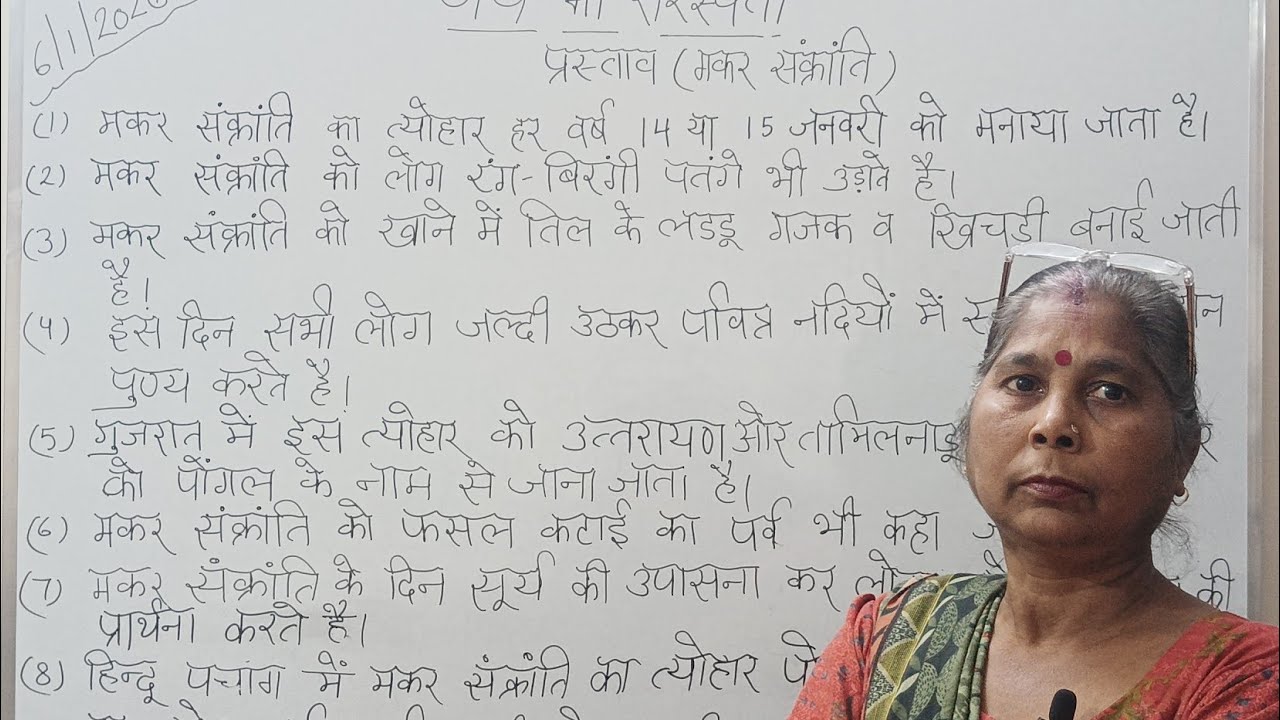 6/1/2026
जय माँ सरस्वती
प्रस्ताव (मकर संक्रांति)
(1) मकर संक्रांति का त्योहार हर वर्ष 14 या 15 जनवरी को मनाया जाता है।
(2) मकर संक्रांति को लोग रंग-बिरंगी पतंगे भी उड़ाते है।
(3) मकर संक्रांति को खाने में तिल के लडडू गजक व खिचडी बनाई जाती
है।
(4) इस दिन सभी लोग जल्दी उठकर पवित्र नदियों में
पुण्य करते है।
(5) गुजरात में इस त्योहार को उत्तरायण ओर तामिलनाडू
को पोंगल के नाम से जाना जाता है।
(6) मकर संक्रांति को फसल कटाई का पर्व भी कहा
(7) मकर संक्रांति के दिन सूर्य की उपासना कर की
प्रार्थना करते है।
(8) हिन्दू पचांग में मकर संक्रांति का त्योहार